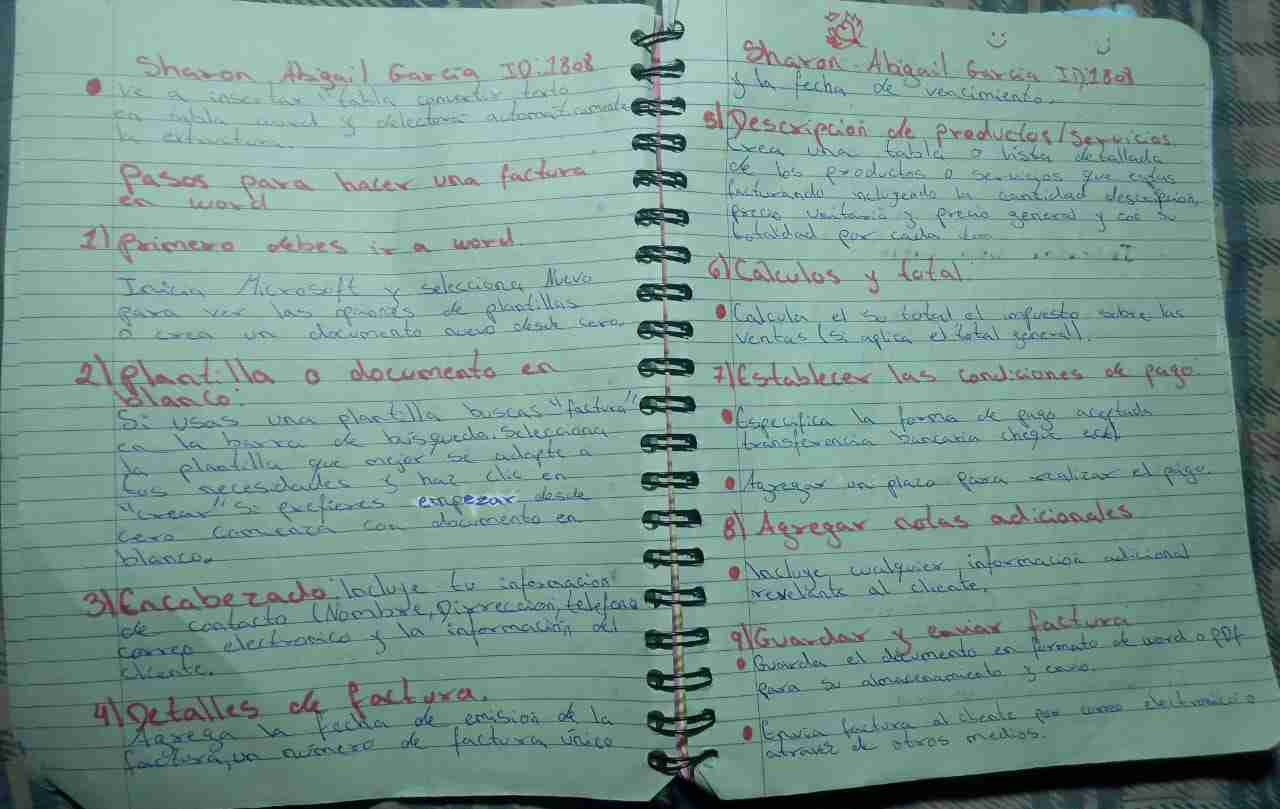 Sharon Abigail Garcia ID:1808
Ve a insertar tabla convertir texto
en tabla word y detectara automaticamente
la estructura.
Pasos para hacer una factura
en word
1) Primero debes ir a word.
Inicia Microsoft y selecciona Nuevo
para ver las opciones de plantillas
o crea un documento nuevo desde cero.
2) Plantilla o documento en
blanco:
Si usas una plantilla buscas "factura"
en la barra de búsqueda. Selecciona
la plantilla que mejor se adapte a
tus necesidades y haz clic en
"crear" Si prefieres empezar desde
cero comienza con documento en
blanco.
3) Encabezado: Incluye tu información
de contacto (Nombre, Dirreccion, telefono
correo electronico y la información del
cliente.
4) Detalles de factura.
Agrega la fecha de emisión de la
factura, un número de factura único
Sharon Abigail Garcia ID:1808
y la fecha de vencimiento.
5) Descripcion de productos/servicios
Crea una tabla o lista detallada
de los productos o servicios que estas
facturando incluyendo la cantidad descripcion,
precio unitario y precio general y con su
totalidad por cada
6) Calculos y total:
Calcula el su total el impuesto sobre las
ventas (si aplica el total general).
7) Establecer las condiciones de pago
Especifica la forma de pago aceptada
transferencia bancaria cheque
Agregar un plazo para realizar el pago.
8) Agregar notas adicionales
Incluye cualquier informacion adicional
revelante al cliente.
9) Guardar y enviar factura
Guarda el documento en formato de word o PDF
para su almacenamiento y envio.
Envia factura al cliente por correo electronico o
atravez de otros medios.